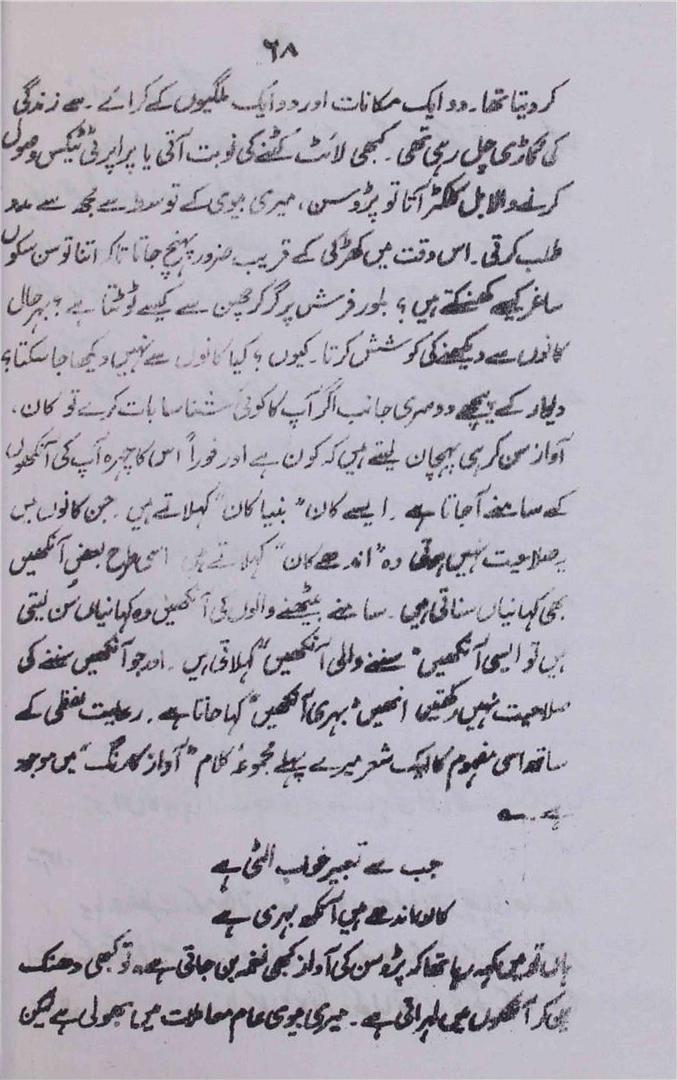 ۶۸
کر دیتا تھا۔ دو ایک مکانات اور دو ایک ملگیوں کے کرائے۔ سے زندگی
کی گاڑی چل رہی تھی۔ کبھی لائٹ کٹنے کی نوبت آتی یا پراپرٹی ٹیکس وصول
کرنے والا بل کلکٹر آتا تو پڑوسن، میری بیوی کے توسط سے مجھ سے مدد
طلب کرتی۔ اس وقت میں کھڑکی کے قریب ضرور پہنچ جاتا تاکہ اتنا تو سن سکوں
ساغر کیسے کھنکتے ہیں؟ بلور فرش پر گر کر چھن سے کیسے ٹوٹتا ہے؟ بہرحال
کانوں سے دیکھنے کی کوشش کرتا۔ کیوں؟ کیا کانوں سے نہیں دیکھا جا سکتا؟
دیوار کے پیچھے دوسری جانب اگر آپ کا کوئی شناسا بات کرے تو کان،
آواز سن کر ہی پہچان لیتے ہیں کہ کون ہے اور فوراً اس کا چہرہ آپ کی آنکھوں
کے سامنے آ جاتا ہے۔ ایسے کان "بنیا کان" کہلاتے ہیں۔ جن کانوں میں
یہ صلاحیت نہیں ہوتی وہ "اندھے کان" کہلاتے ہیں اسی طرح بعض آنکھیں
بھی کہانیاں سناتی ہیں۔ سامنے بیٹھنے والوں کی آنکھیں وہ کہانیاں سُن لیتی
ہیں تو ایسی آنکھیں "سننے والی آنکھیں" کہلاتی ہیں۔ اور جو آنکھیں سننے کی
صلاحیت نہیں رکھتیں انھیں "بہری آنکھیں" کہا جاتا ہے۔ رعایت لفظی کے
ساتھ اسی مفہوم کا ایک شعر میرے پہلے مجموعۂ کلام "آواز کا رنگ" میں موجود
ہے۔ ؎
جب سے تعبیر خواب الٹی ہے
کان اندھے ہیں آنکھ بہری ہے
ہاں تو میں کہہ رہا تھا کہ پڑوسن کی آواز کبھی نغمہ بن جاتی ہے۔ تو کبھی دھنک
بن کر آنکھوں میں لہراتی ہے۔ میری بیوی عام معاملات میں بھولی ہے لیکن